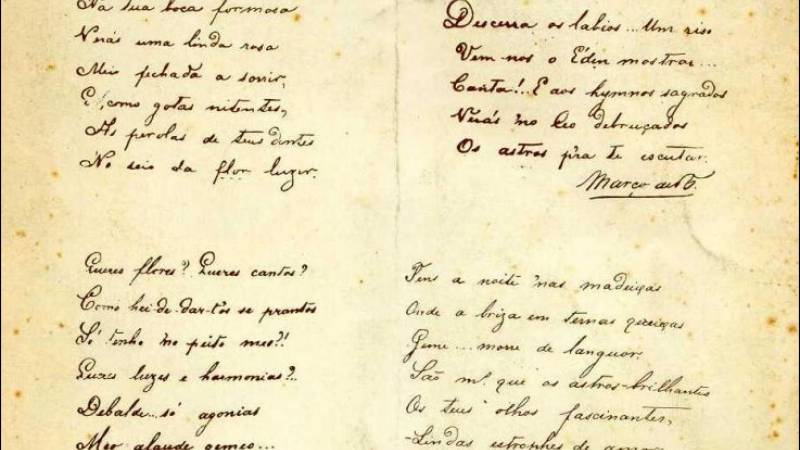 Na tua boca formosa
Verás uma linda rosa
Meio fechada a sorrir,
E, como gotas nitentes,
As perolas de teus dentes
No seio da flor luzir.
Queres flores? Queres cantos?
Como hei-de dar-t'os se prantos
Só tenho no peito meo?!
Queres luzes e harmonias?..
Debalde... só agonias
Meo alaude gemeo...
Descerra os labios... Um riso
Vem-nos o Éden mostrar...
Canta!.. E aos hymnos sagrados
Verás no Ceo debruçados
Os astros p'ra te escutar.
Março de
Tens a noite nas madeixas
Onde a briza em ternas queixas
Geme... morre de languor.
São m^s. que os astros-brilhantes
Os teus olhos fascinantes,
-Lindas estrophes de amor